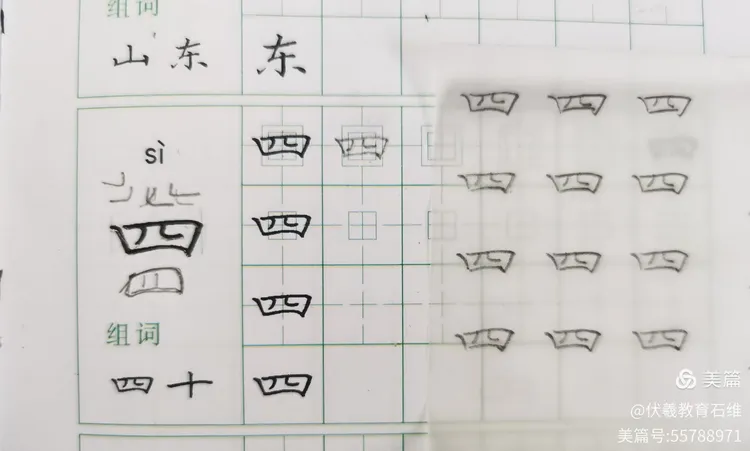 组词
山东 东
四 四 四
sì
四 四 四 四
四
四
四 四 四 四
组词
四 四 四
四十 四
美篇
@伏羲教育石维
美篇号:55788971